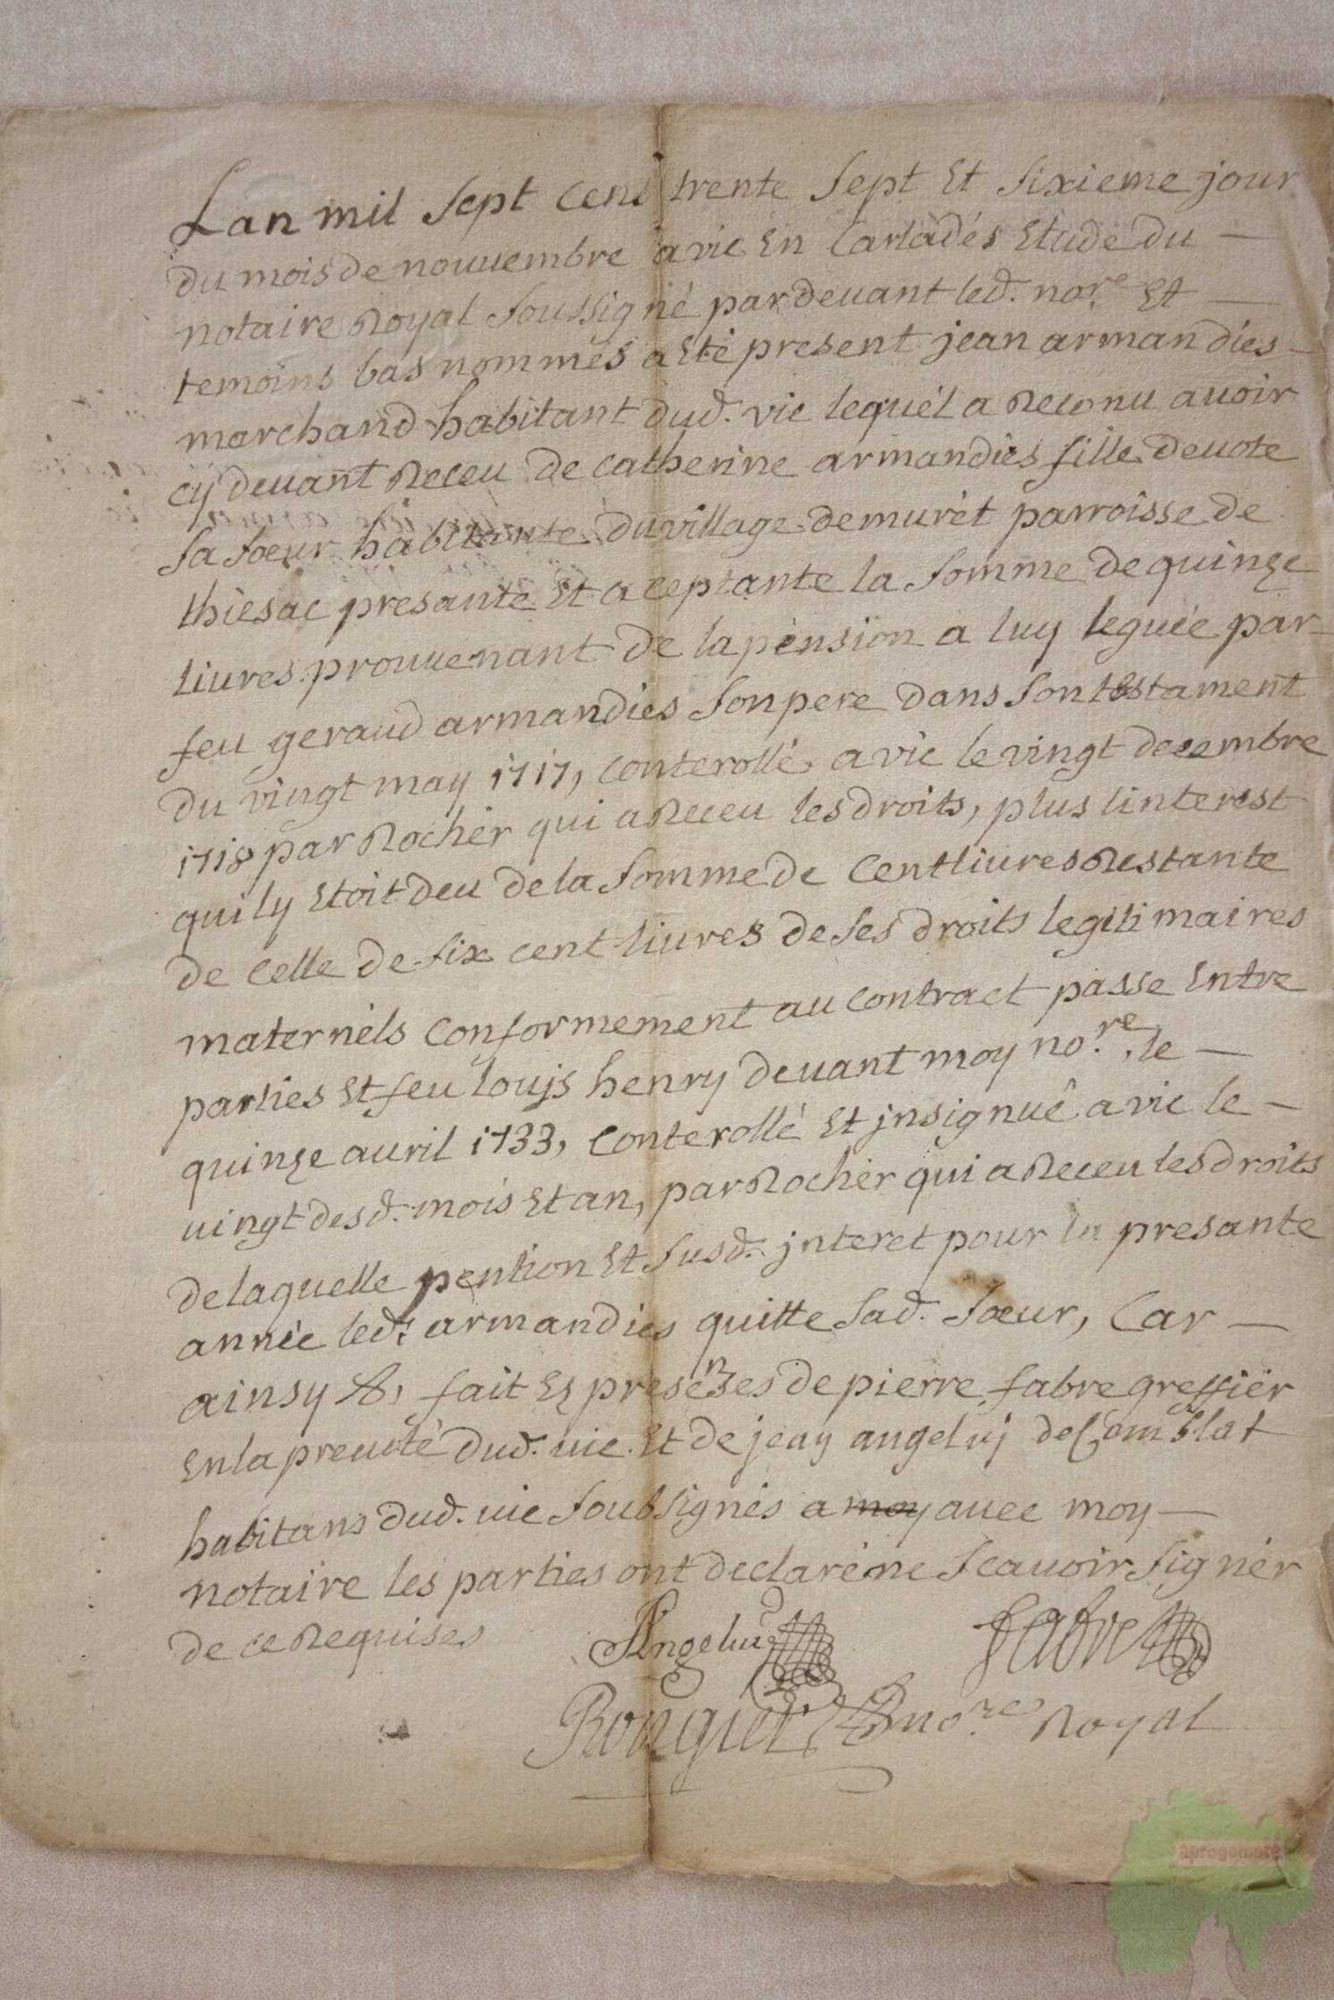 Lan mil sept cent trente sept Et sixieme jour
du mois de nouvembre a vic En Carladés Etude du
notaire Royal soussigné pardevant led. no.re Et
temoins bas nommés a Eté present jean armandies
marchand habitant dud. vic lequél a Reconu avoir
cy devant Receu de catherine armandiés fille devote
sa soeur habitante du village de murét parroisse de
thiesac presante Et aceptante la somme de quinze
livres prouvenant de la pension a luy leguée par
feu geraud armandies son pere dans son testament
du vingt may 1717, conterollé a vic le vingt decembre
1718 par Rocher qui a Receu les droits, plus linterest
qui ly Etoit deu de la somme de Cent livres Restante
de celle de six cent livres de ses droits legitimaires
maternéls conformement au contract passe Entre
parties Et feu louis henry devant moy no.re le
quinze auril 1733, Conterollé Et jnsignué a vic le
vingt desd. mois Et an, par Rochér qui a Receu les droits
de laquelle pention Et susd. jnteret pour la presante
année led. armandies quitte sad. soeur, Car
ainsy &, fait Es presénses de pierre fabre greffiér
En la prevoté dud. vic Et de jean angeluy de Comblat
habitans dud. vic soubsignés a moy avec moy
notaire les parties ont declaré ne scavoir signér
de ce Requises
Angeluy Fabre
no.re Royal